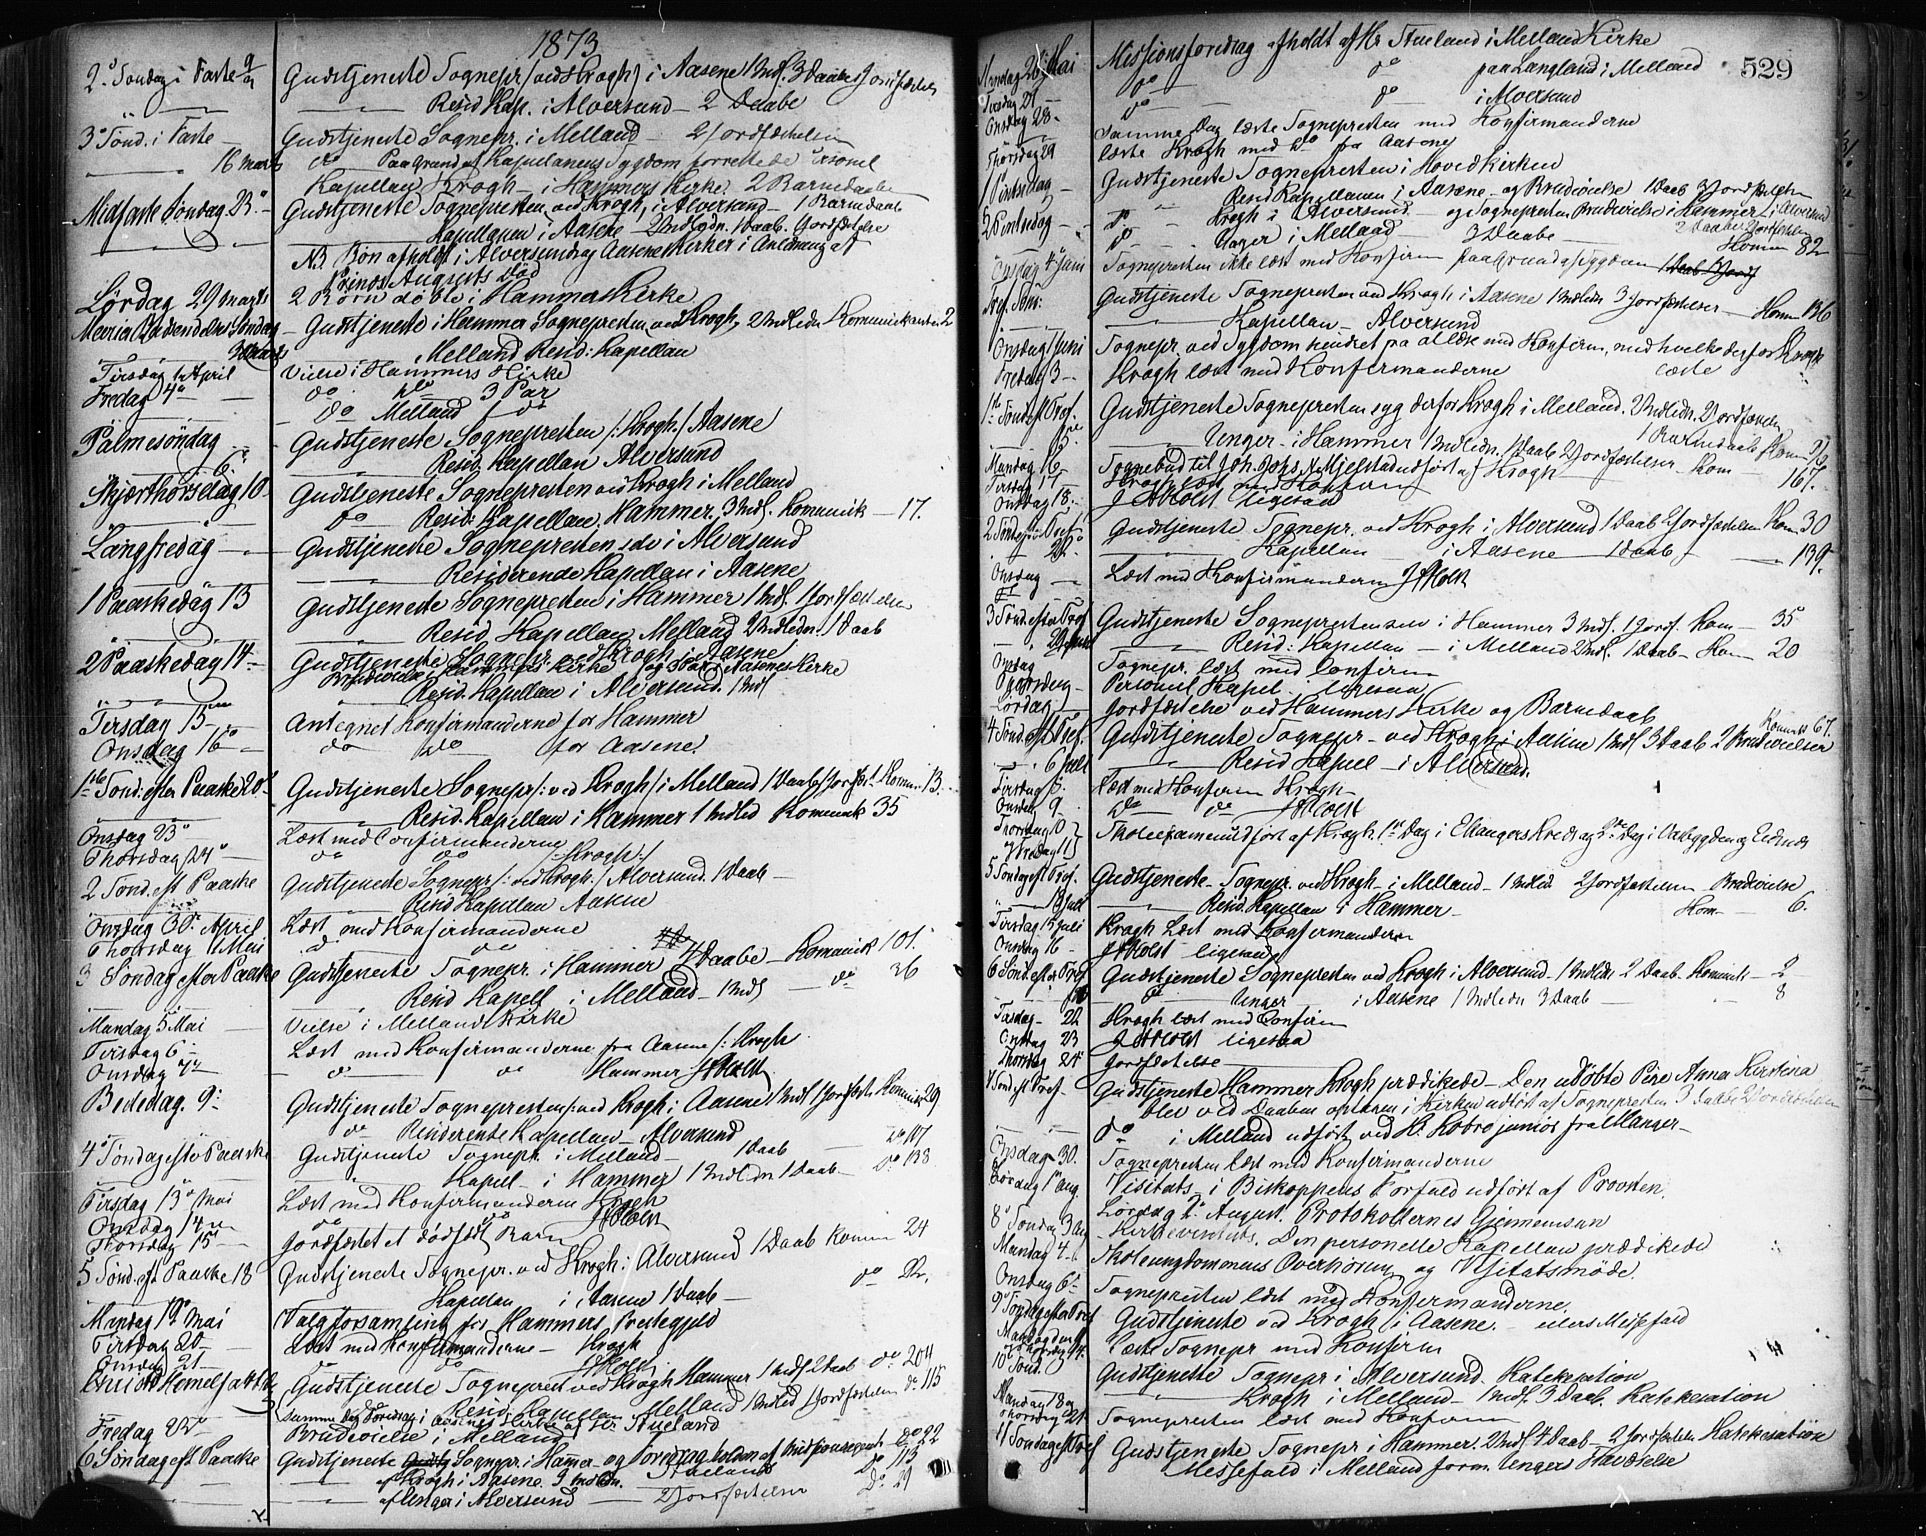 1873
2den Søndag i Faste 9/3 Gudstjeneste Sognepr. /ved Krogh/ i Aasene 1 Indl. 3 Daabe Jordfæstelse
" Resid. Kap. i Alversund - 2 Daabe
3de Sønd. i Faste - Gudstjeneste Sognepr. i Melland - 2 Jordfæstelser
16 Marts do Paa Grund af Kapellanens Sygdom forrettede Personel
Kapellan Krogh - i Hammers Kirke. 2 Barnedaabe
Midfaste Søndag 23de - Gudstjeneste Sognepresten ved Krogh, i Alversund - 1 Barnedaab
Kapellanen i Aasene - 2 Indledn. 1 Daab. 1 Jordfæstelse
NB Bøn afholdt i Alversund og Aasene Kirker i Anledning af
Prinds Augusts Død
Lørdag 29 Marts 2 Børn døbte i Hammers Kirke
Mariæ Bebudelses Søndag - Gudstjeneste i Hammer Sognepresten ved Krogh, 2 Indledn. Komunikanter 2
30 Marts Melland Resid: Kapellan
Tirsdag 1ste April Vielse i Hammers Kirke
Fredag 4de do do 3 Par
do Melland 1 do
Palmesøndag 6te Gudstjeneste Sognepresten /: Krogh :/ Aasene
Resid. Kapellan Alversund
Skjærthorsdag 10 - Gudstjeneste Sognepresten ved Krogh i Melland
do Resid: Kapellan. Hammer. 3 Indl. Komunik - 17.
Langfredag - Gudstjeneste Sognepresten selv i Alversund
Residerende Kapellan i Aasene
1 Paaskedag 13 Gudstjeneste Sognepresten i Hammer 1 Indl. 1 Jordfæstelse
Resid. Kapellan Melland 2 Indledn. 1 Daab
2 Paaskedag 14 - Gudstjeneste Sognepr. ved Krogh i Aasene
Brudevielse i Hammers Kirke og 3 Par i Aasenes Kirke
Resid. Kapellan i Alversund. 1 Indl
Tirsdag 15 Antegnet Konfirmanderne for Hammer
Onsdag 16de - do do for Aasene
1ste Sønd. efter Paaske 20de Gudstjeneste Sognepr /: ved Krogh :/ i Melland 1 Daab 1 Jordfæst. Komun. 13.
Resid. Kapellan i Hammer 1 Indled Komunik 35
Onsdag 23de Læst med Confirmanderne
Thorsdag 24de - do do /: Krogh :/
2 Sønd. eft Paaske Gudstjeneste Sognepr /: ved Krogh :/ Alversund. 1 Daab -
Resid Kapellan Aasene
Onsdag 30de April Læst med Konfirmanderne
Thorsdag 1 Mai do do
3 Søndag efter Paaske Gudstjeneste Sognepr. i Hammer 4 Daabe - Komunik 101.
Resid Kapell i Melland - 1 Indl - do 36
Mandag 5 Mai - Vielse i Mellands Kirke
Tirsdag 6 - Læst med Konfirmanderne fra Aasene /: Krogh
Onsdag 7de - do do Hammer J A Holst
Bededag. 9de Gudstjeneste Sognepresten /: ved Krogh i Aasene 1 Indl 1 Jordfæst. Komunik 29
do Residerende Kapellan - Alversund do 107
4de Søndag efter Paaske Gudstjeneste Sognepr. i Melland - 1 Daab - do 138
Kapel - i Hammer 1 Indledn 1 Daab -
Tirsdag 13de Mai Læst med Konfirmanderne Krogh
Onsdag 14de do do J A Holst
Thorsdag 15de Jordfæstet et dødfødt Barn
5 Sønd. eft Paaske 18 Gudstjeneste Sognepr. ved Krogh: Alversund 1 Daab Komun 24
Kapellan i Aasene 1 Daab - do 22.
Mandag 19de Mai Valgforsamling for Hammers Prestegjeld
Tirsdag 20 - Læst med Konfirmanderne - Krogh
Onsdag 21 - do do J A Holst
Christi Himmelfartsdag Gudstjeneste Sognepresten ved Krogh Hammer 1 Indl. 2 Daab do 204
Resid. Kapellan Melland 1 Indled 1 Jordfæstelse do 115
samme Dag Foredrag i Aasenes Kirke af Hr. Stueland
Fredag 23de Brudevielse i Melland
6 Søndag eft Paaske Gudstjeneste Sognepr. i Hammer og Foredrag holdt af Missionsagent do 22
af Krogh i Aasene. 9 Indledn. Stueland Do 113
af Unger i Alversund - 2 Jordfæstelser Do 29
529
Mandag 26 Mai Missionsforedrag afholdt af Hr Stueland i Melland Kirke
do do paa Langland i Melland
Tirsdag 27 - do do i Alversund
Onsdag 28 - samme Dag læste Sognepresten med Konfirmanderne
Thorsdag 29 læste Krogh med do fra Aasene
1 Pintsedag - Gudstjeneste Sognepresten i Hovedkirken
Resid Kapellanen i Aasene - og Brudevielse 1 Daab 3 Jordfæstelser
2 Pintsedag - do Krogh i Alversund - og Sognepresten Brudevielse i Hammer, i Alversund
2 Daabe Jordfæstelser
do Unger i Melland - 3 Daabe - Komun 82
Onsdag 4de Juni Sognepresten ikke læst med Konfirm paa Grund af Sygdom
Tref. Sønd: Gudstjeneste Sognepresten ved Krogh i Aasene 1 Indledn 3 Jordfæstelser - Komun 136
Kapellan - Alversund
Onsdag Juni Sognepr. ved Sygdom hindret fra at læse med Konfirm, med hvilke derfor Krogh
læste
Fredag 13 - Krogh læst med Konfirmanderne
1ste Sønd. eft Tref. 15de Gudstjeneste Sognepresten syg derfor Krogh i Melland. 2 Indledn. 2 Jordfæstelser
1 Barnedaab
Unger i Hammer 1 Indledn. 1 Daab 2 Jordfæstelser - Kom -
Mandag 16 - Sognebud til Joh. Johs. N. Mjelstad udført af Krogh 167.
Tirsdag 17 Krogh læst med Konfirm
Onsdag 18. J A Holst ligesaa
2 Sønd. eft Tref. 22de Gudstjeneste Sognepr. ved Krogh i Alversund 1 Daab 2 Jordfæstelser Kom 30
Kapellan - i Aasene - 1 Daab - 139.
Onsdag - Læst med Konfirmanderne J A Holst
3 Sønd. efter Tref. 29 Juni Gudstjeneste Sognepresten selv i Hammer 3 Indl. 1 Jordf. Kom - 35
Resid: Kapellan - i Melland 2 Indl. 1 Daab - Kom 20
Onsdag Sognepr. læst med Confirm
Thorsdag - Personel Kapel. ligesaa
Lørdag Jordfæstelse ved Hammers Kirke og Barnedaab
4 Sønd. eft Tref. Gudstjeneste Sognepr - ved Krogh i Aasene 1 Indl 3 Daab 2 Brudevielser Komunik 67.
6 Juli Resid Kapel - i Alversund.
Tirsdag 8. Læst med Konfirm Krogh -
Onsdag 9. do do J A Holst
Thorsdag 10 Fredag 11 Skoleexamen udført af Krogh. 1ste Dag i Eknangers Kreds og 2den Dag i Dalbygden og Eidsnes
5 Søndag eft Tref. Gudstjeneste - Sognepr. ved Krogh - i Melland - 1 Indledn 2 Jordfæstelser Brudevielse
13 Juli Resid. Kapellan i Hammer - Kom - 6.
Tirsdag 15 Juli Krogh læst med Konfirmanderne
Onsdag 16 - J A Holst ligesaa
6 Sønd. efter Tref Gudstjeneste Sognepresten ved Krogh i Alversund - 1 Indledn 2 Daab. Komunik - 2
do Unger i Aasene 1 Indledn 3 Daab - 8
Tirsdag - 22 Krogh læst med Confirm
Onsdag 23 J A Holst ligesaa
Thorsdag 24 Jordfæstelse -
7 Sønd. eft Tref - Gudstjeneste Hammer Krogh prædikede - Den udøbte Pige Anna Kirstina
blev ved Daaben optagen i Kirken udført af Sognepresten 3 Daabe 2 Jordfæstelser
do i Melland udført ved Hr. Kobro junior fra Manger -
Onsdag 30. Sognepresten læst med Konfirmanderne
Lørdag 1ste Aug. Visitats i Biskoppens Forfald udført af Provsten.
Lørdag 2de August. Protokollernes Gjennemsyn
8de Søndag 3 Aug - Kirkevisitats. Den personelle Kapellan prædikede
Mandag 4. Skoleungdommens Overhøring og Visitatsmøde.
Onsdag 6te Sognepresten læst med Konfirmanderne.
9de Søndag efter Tref Gudstjeneste ved Krogh i Aasene. - ellers Messefald
Mandag den 11 og Thorsdag 14. Læste Sognepr med Konfirm
10de Sønd. Gudstjeneste Sognepr i Alversund. Katekesation
Krogh i Melland - 1 Indl. 3 Daab. Katekesation
Mandag 18 og Thorsdag 21. Sognepresten læst med Konfirm
11 Søndag eft Tref Gudstjeneste Sognepr i Hammer. 2 Indl. 4 Daab - 2 Jordfæstelser Katekesation
Messefald i Melland form. Ungers Fravælse